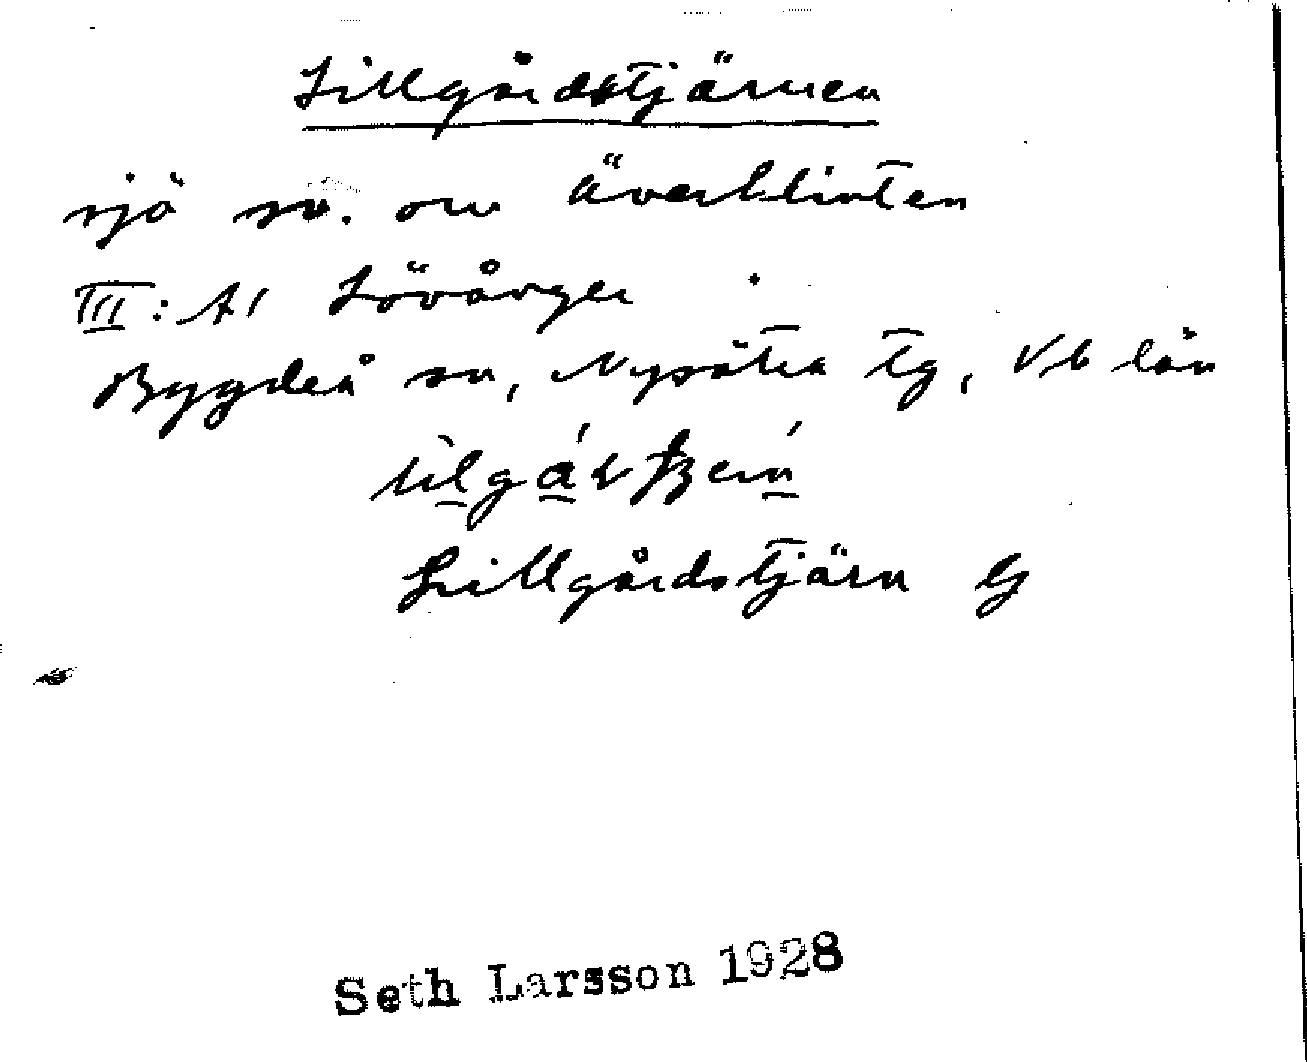 Lillgårdstjärnen
sjö sv. om Överklinten
III: A1 Lövånger
Bygdeå sn, Nysätra tg, Vb län
Lillgårdstjärn G
Seth Larsson 1928